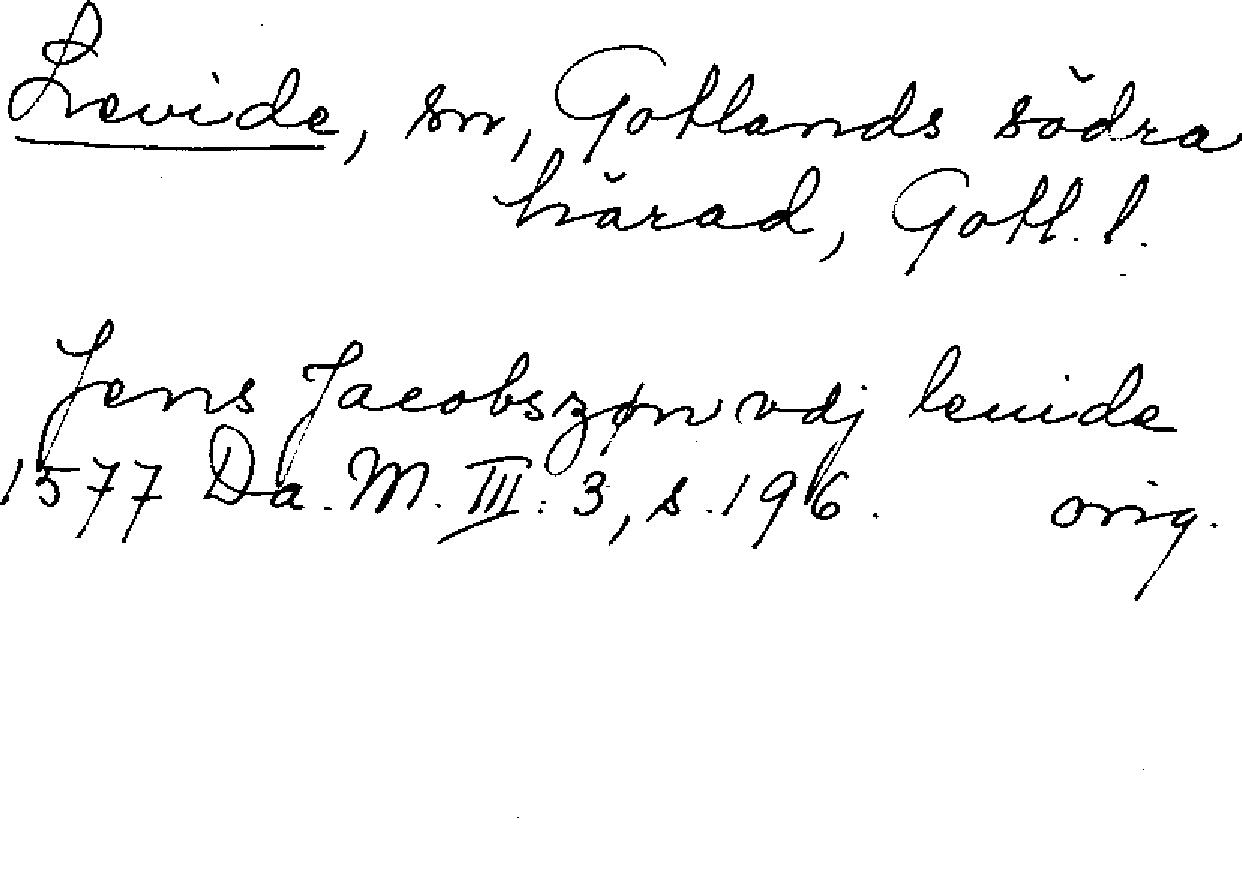 Levide, sn, Gotlands södra
härad, Gotl. l.
Jens Jacobszøn vdj leuide
1577 Da. M. III: 3, s. 196. orig.